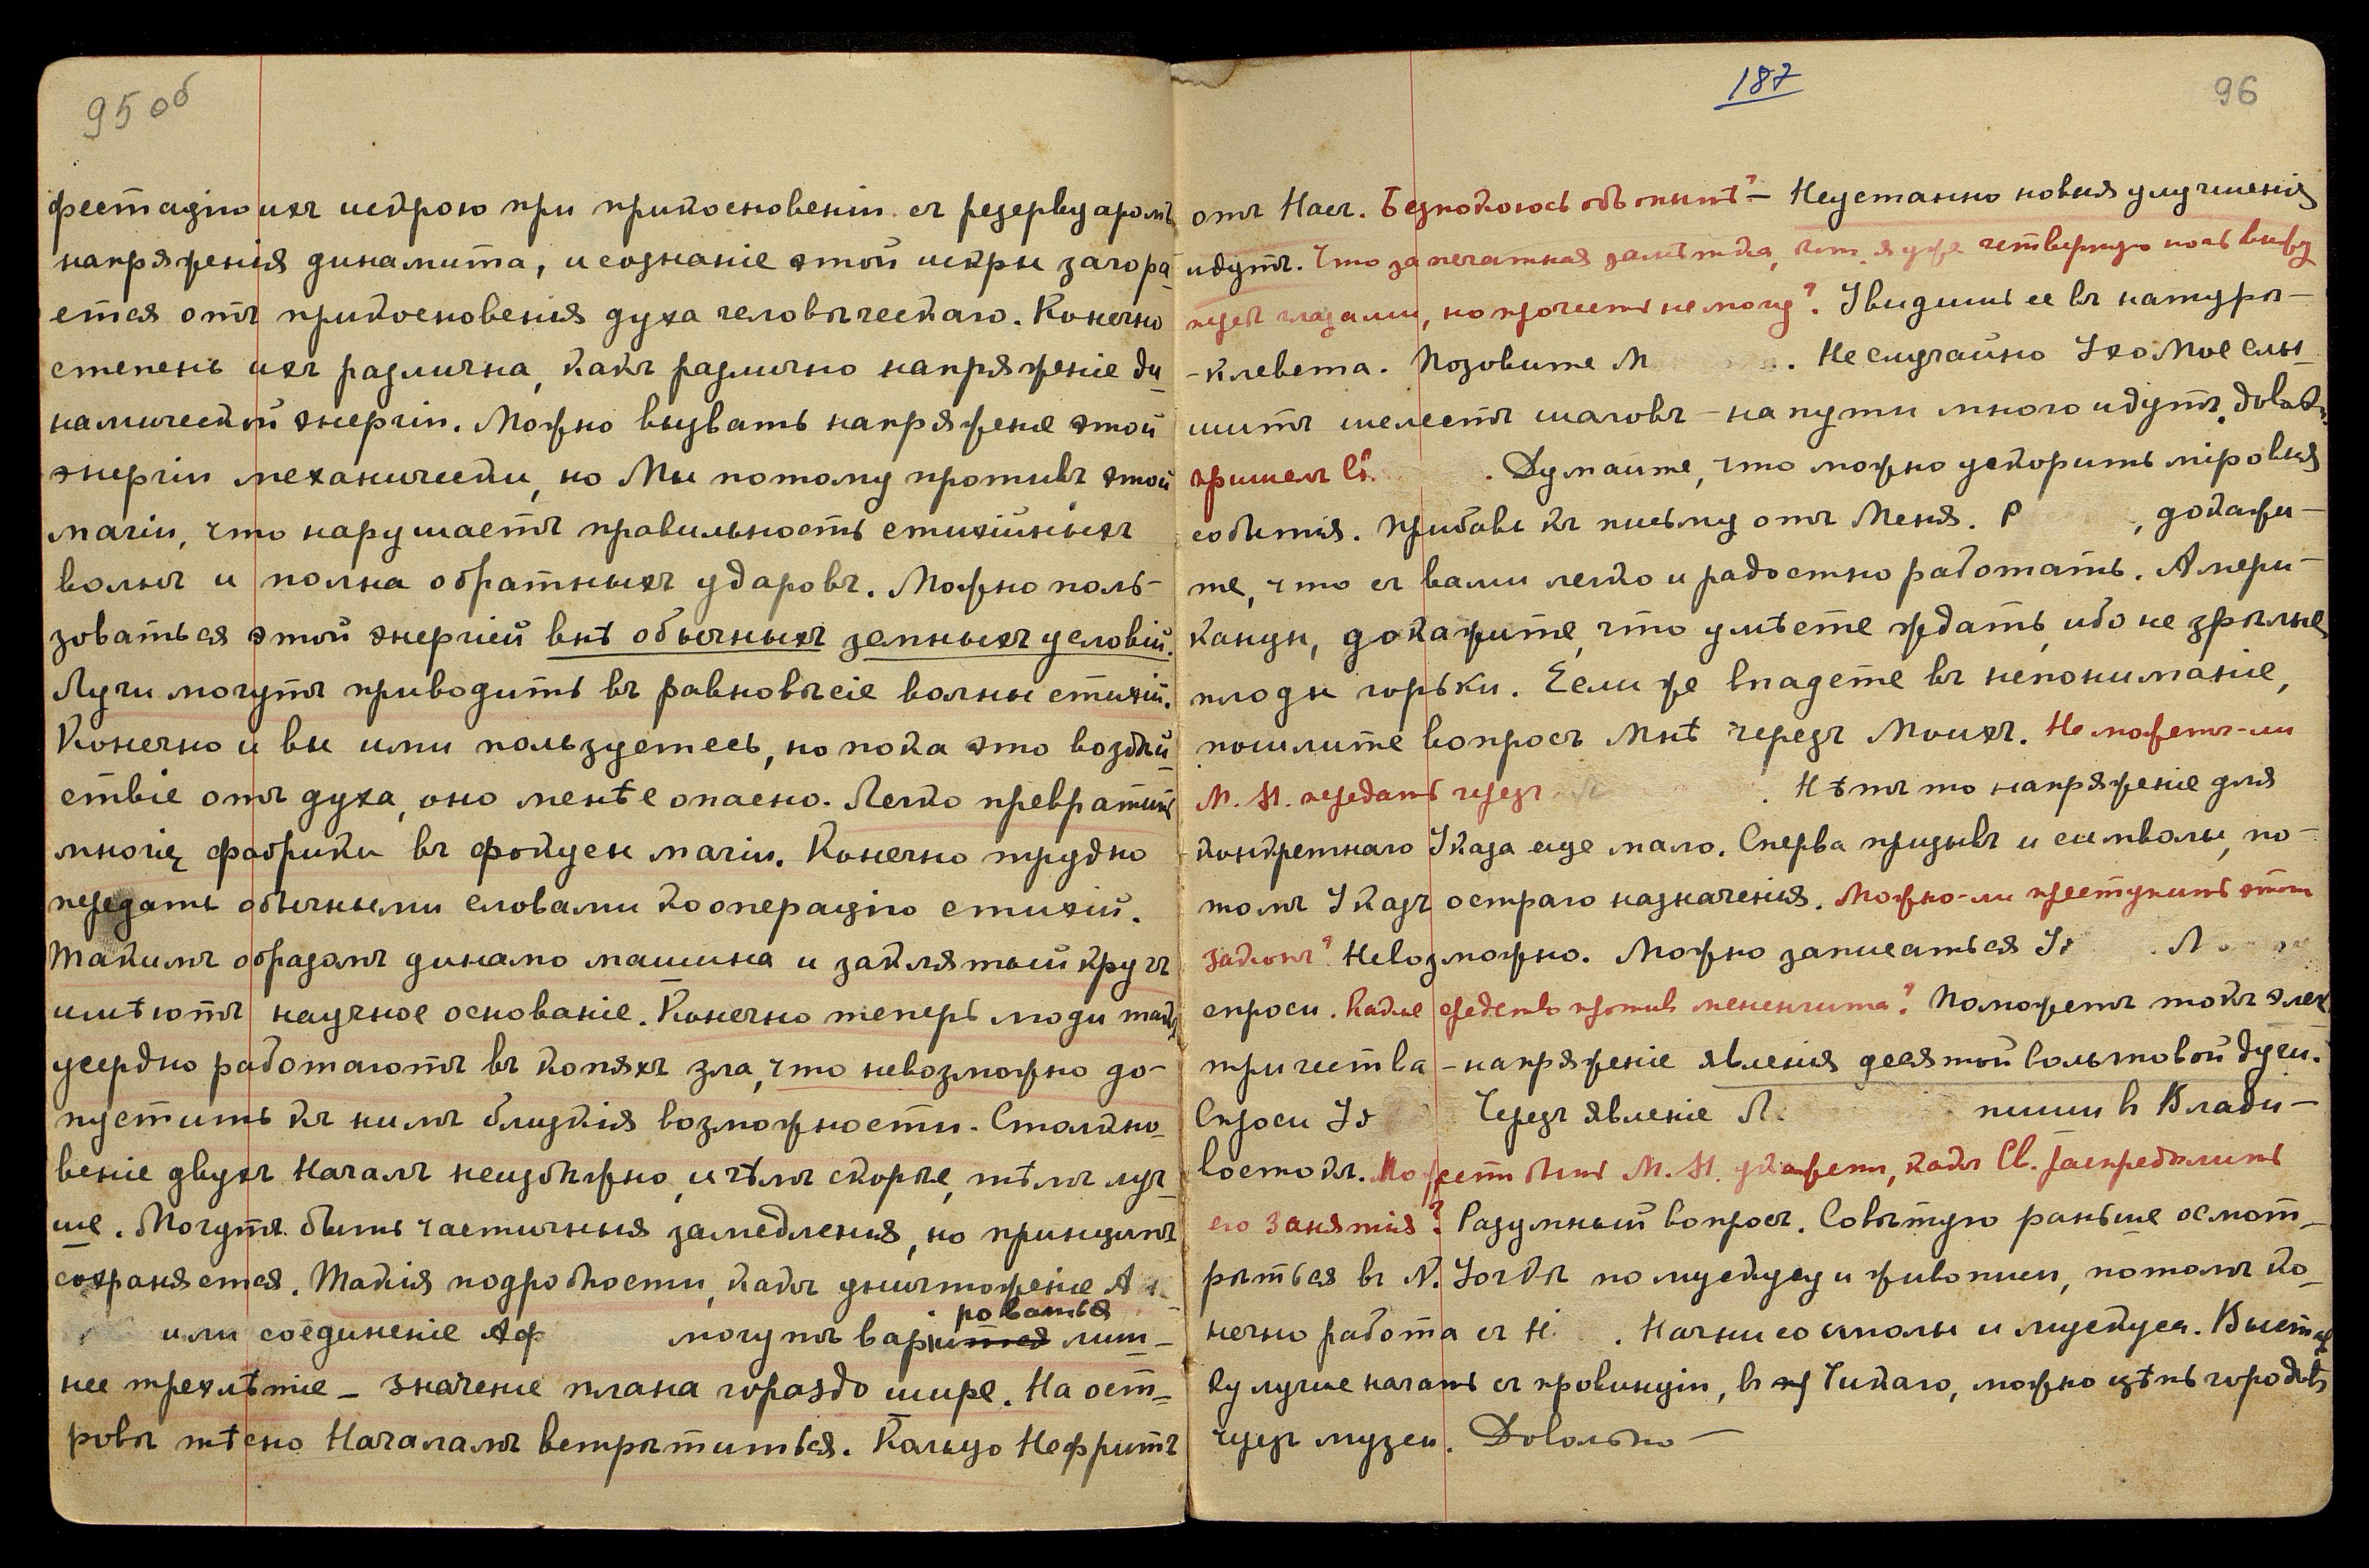 95об
фестацію ихъ искрою при прикосновеніи съ резервуаромъ
напряженія динамита, и сознаніе этой искры загора-
ется отъ прикосновенія духа человѣческаго. Конечно
степень ихъ различна, какъ различно напряженіе ди-
намической энергіи. Можно вызвать напряженіе этой
энергіи механически, но Мы потому противъ этой
магіи, что нарушаетъ правильность стихійныхъ
волнъ и полна обратныхъ ударовъ. Можно поль-
зоваться этой энергіей внѣ обычныхъ земныхъ условій.
Лучи могутъ приводить въ равновѣсіе волны стихій.
Конечно и вы ими пользуетесь, но пока это воздѣй-
ствіе отъ духа, оно менѣе опасно. Легко превратить
многія фабрики въ фокусы магіи. Конечно трудно
передать обычными словами кооперацію стихій.
Такимъ образомъ динамо машина и заклятый кругъ
имѣютъ научное основаніе. Конечно теперь люди такъ
усердно работаютъ въ копяхъ зла, что невозможно до-
пустить къ нимъ близкія возможности. Столкно-
веніе двухъ Началъ неизбѣжно, и чѣмъ скорѣе, тѣмъ луч-
ше. Могутъ быть частичныя замедленія, но принципъ
сохраняется. Такія подробности, какъ уничтоженіе А
роваться
или соединеніе Аф могутъ варіится лиш-
нее трехлѣтіе – значеніе плана гораздо шире. На ост-
ровѣ тѣсно Началамъ встрѣтиться. Кольцо Нефритъ
187
96
отъ Насъ. Безпокоюсь объ опытѣ? – Неустанно новыя улучшенія
идутъ. Что за печатная замѣтка, что я уже четвертую ночь вижу
передъ глазами, но прочесть не могу? Увидишь ее въ натурѣ –
– клевета. Позовите М . Не случайно Ухо Мое слы-
шитъ шелестъ шаговъ – на пути много идутъ.
пришелъ . Думайте, что можно ускорить міровыя
событія. Прибавь къ письму отъ Меня. Р , докажи-
те, что съ вами легко и радостно работать. Амери-
канцы, докажите, что умѣете ждать, ибо не зрѣлые
плоды горьки. Если же впадете въ непониманіе,
пошлите вопросъ Мнѣ черезъ Моихъ. Не можетъ-ли
М. Н. передать черезъ . Нѣтъ то напряженіе для
конкретнаго Указа еще мало. Сперва призывъ и символы, по-
томъ Указъ остраго назначенія. Можно-ли преступить этотъ
законъ? Невозможно. Можно записаться Ух . Л
спроси. Какое средство противъ менингита? Поможетъ токъ элек-
тричества – напряженіе явленія десятой вольтовой дуги.
Спроси Ух Черезъ явленіе Л. пиши в Влади-
востокъ. Можетъ быть М. Н. укажетъ, какъ Св. распредѣлить
его занятія? Разумный вопросъ. Совѣтую раньше осмот-
рѣться въ N. Іоркѣ по музыкѣ и живописи, потомъ ко-
нечно работа съ Н. . Начни со школы и музыки. Выстав-
ку лучше начать съ провинціи, в Чикаго, можно цѣпь городовъ
черезъ музеи. Довольно –